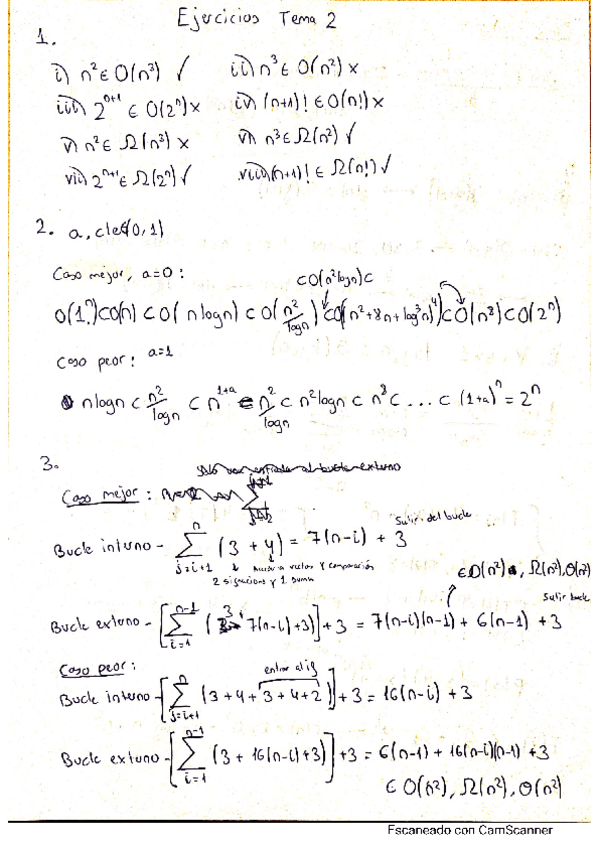 Ejercicios Tema 2
1.
i) n² ∈ O(n³) ✓ ii) n³ ∈ O(n²) ×
iii) 2ⁿ⁺¹ ∈ O(2ⁿ) × iv) (n+1)! ∈ O(n!) ×
v) n² ∈ Ω(n³) × vi) n³ ∈ Ω(n²) ✓
vii) 2ⁿ⁺¹ ∈ Ω(2ⁿ) ✓ viii) (n+1)! ∈ Ω(n!) ✓
2.
Caso mejor, a=0:
⊂ O(n² log n) ⊂
⊂ O(n) ⊂ O(n log n) ⊂ O(n²/log n) ⊂ O(n² + 8n + log³n)⁴ ⊂ O(n³) ⊂ O(2ⁿ)
Caso peor: a=1
n log n ⊂ n²/log n ⊂ n¹⁺ᵃ n²/log n ⊂ n² log n ⊂ n³ ⊂ ... ⊂ (1+a)ⁿ = 2ⁿ
3.
Caso mejor:
Salir del bucle
Bucle interno - Σ_{j=i+1}^{n} (3 + 4) = 7(n-i) + 3
acceso a vector y comparación
y 1 suma
∈ O(n²), Ω(n²), Θ(n²)
Salir bucle
Bucle externo - [Σ_{i=1}^{n-1} (3 7(n-i)+3)] + 3 = 7(n-i)(n-1) + 6(n-1) + 3
Caso peor: entrar al if
Bucle interno - [Σ_{j=i+1}^{n} (3+4+3+4+2)] + 3 = 16(n-i) + 3
Bucle externo - [Σ_{i=1}^{n-1} (3 + 16(n-i)+3)] + 3 = 6(n-1) + 16(n-i)(n-1) + 3
∈ O(n²), Ω(n²), Θ(n²)
Escaneado con CamScanner